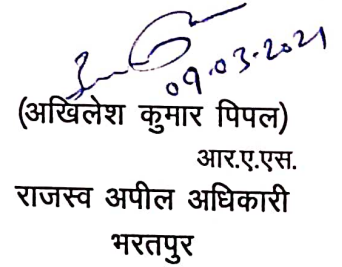 09.03.2021
(अखिलेश कुमार पिपल)
आर.ए.एस.
राजस्व अपील अधिकारी
भरतपुर